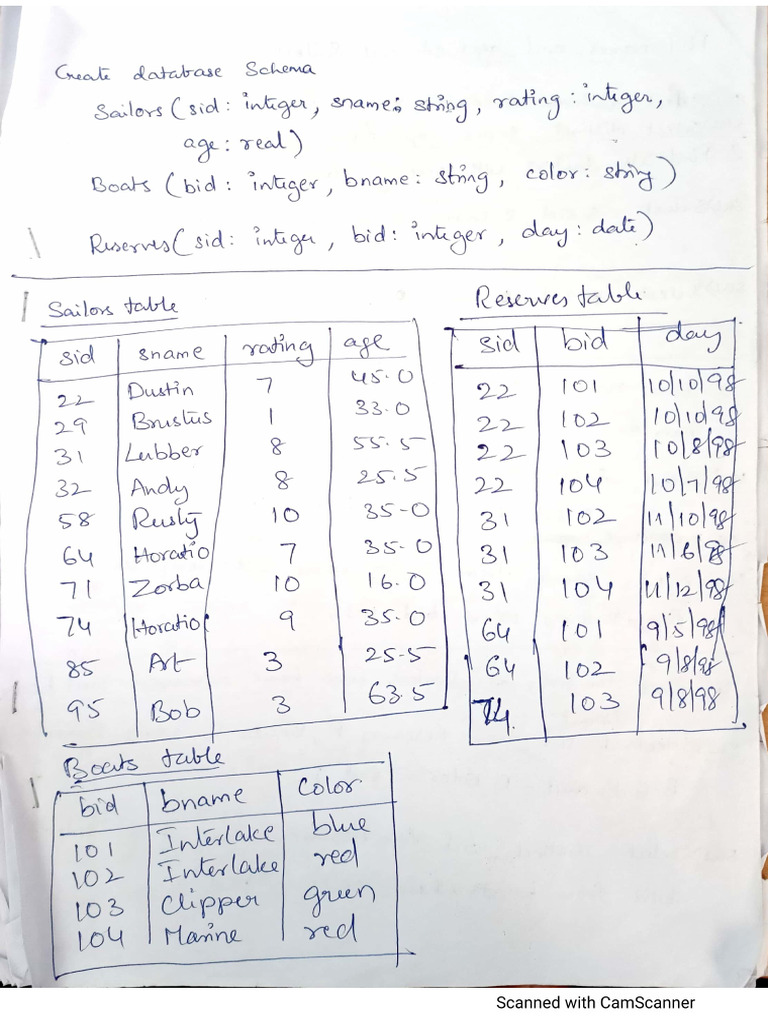 Create database Schema
Sailors (sid: integer, sname: string, rating: integer,
age: real)
Boats (bid: integer, bname: string, color: string)
Reserves (sid: integer, bid: integer, day: date)
Sailors table
sid sname rating age
22 Dustin 7 45.0
29 Brustus 1 33.0
31 Lubber 8 55.5
32 Andy 8 25.5
58 Rusty 10 35-0
64 Horatio 7 35.0
71 Zorba 10 16.0
74 Horatio 9 35.0
85 Art 3 25.5
95 Bob 3 63.5
Reserves table
sid bid day
22 101 10/10/98
22 102 10/10/98
22 103 10/8/98
22 104 10/7/98
31 102 11/10/98
31 103 11/6/98
31 104 11/12/98
64 101 9/5/98
64 102 9/8/98
74 103 9/8/98
Boats table
bid bname color
101 Interlake blue
102 Interlake red
103 clipper green
104 Marine red
Scanned with CamScanner